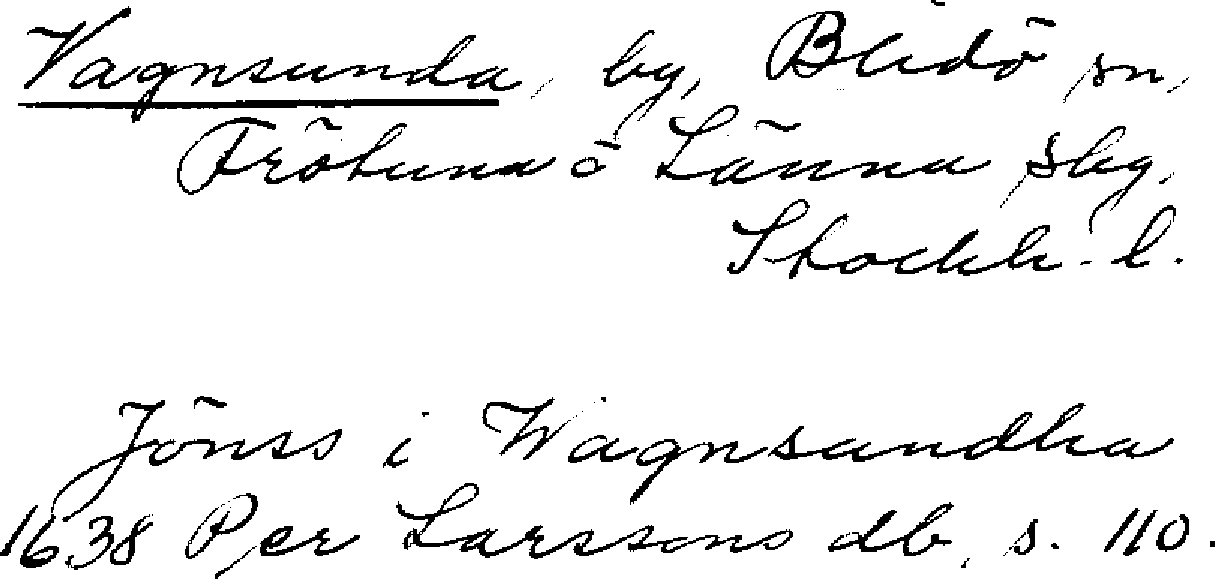 Vagnsunda, by, Blidö sn,
Frötuna o Länna slg,
Stockh. l.
Jönss i Wagnsundha
1638 Per Larssons db, s. 110.